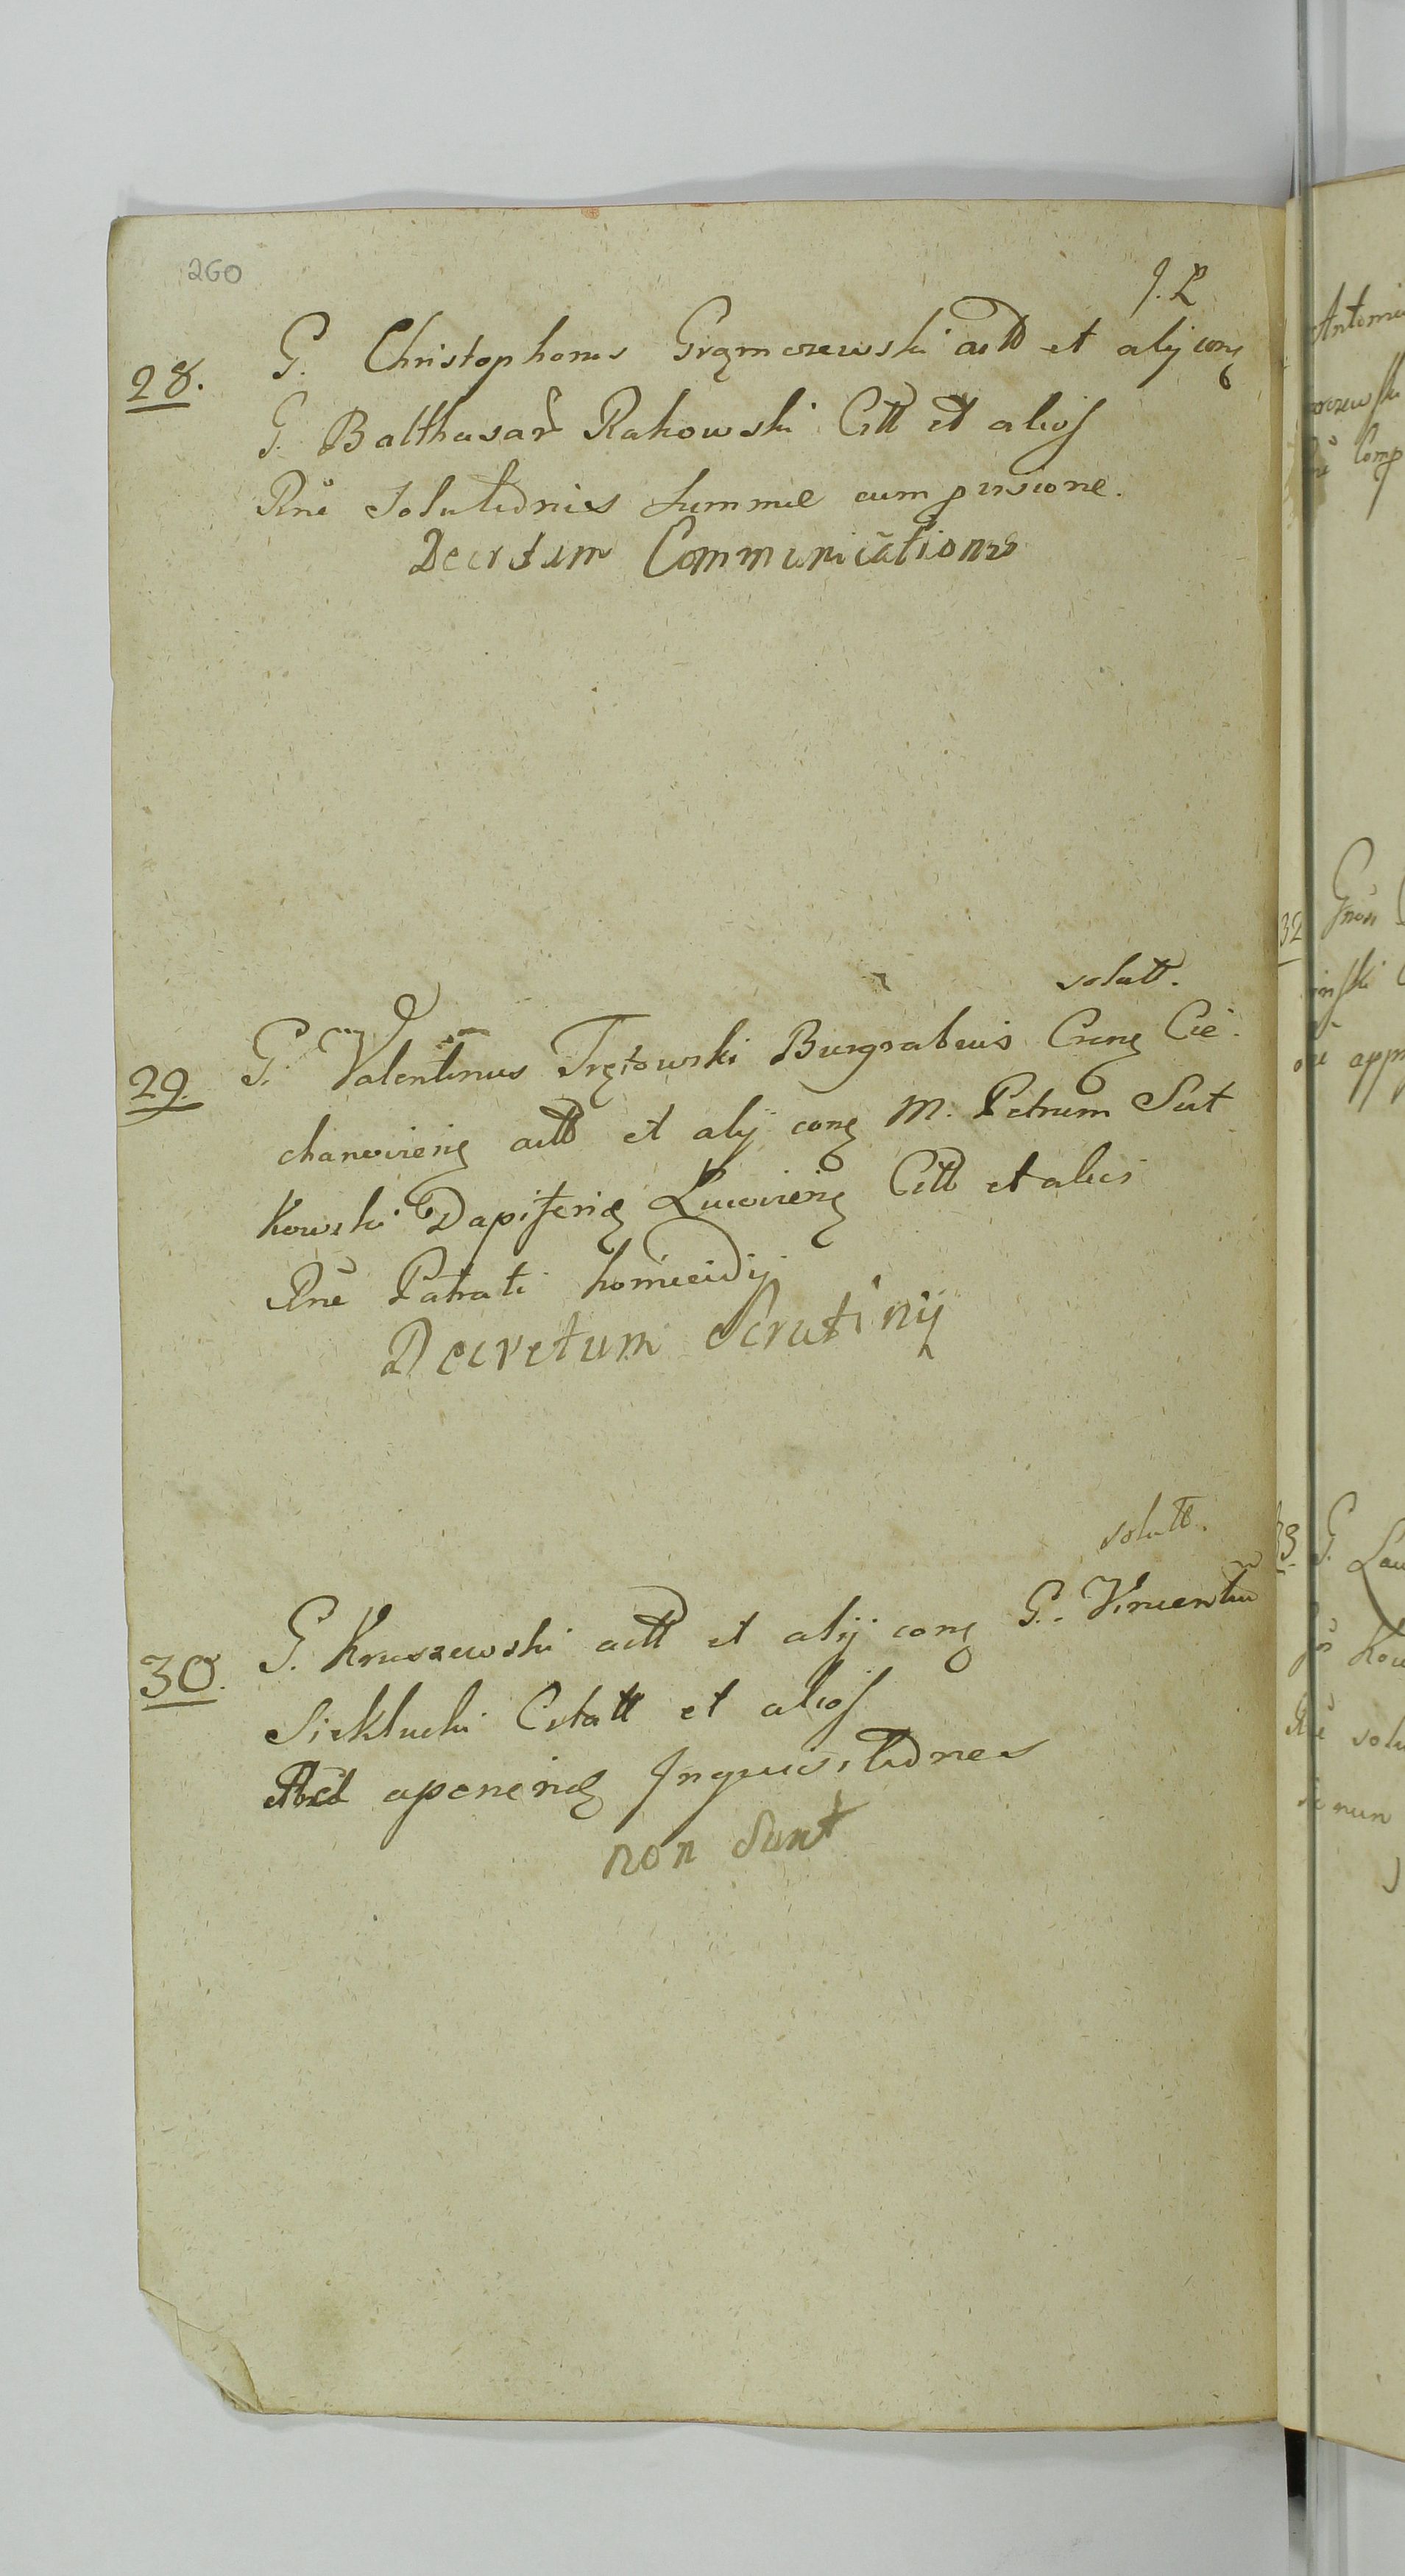 260
J. P
28. G. Christophorus Grąmczewski actt et alij conq
G. Balthasar Rakowski Citt et alios
Rne Solutionis summae cum pensione.
Decretum Communicationis
solutt.
29. G. Valentinus Trętowski Burgrabius Crenq Cie
chanoviens actt et alij conq M. Petrum Sut
kowski Dapiferiq Lucoviens Citt et alios
Rne Patrati homicidij
Decretum Scrutinij
solutt.
30. G. Kruszewski actt et alij conq G. Vincentiu
Siekłucki Citatt et alios
aperienq Inquisitiones
non sunt